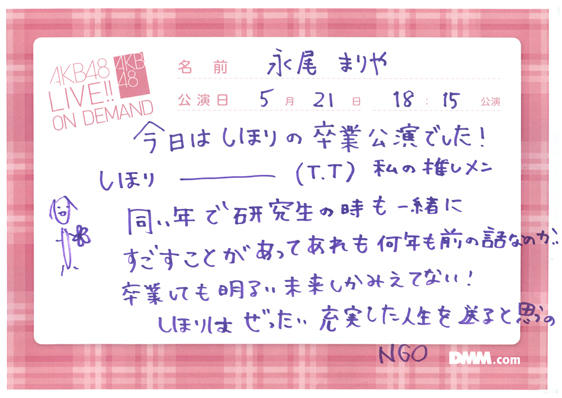 AKB48
LIVE!!
ON DEMAND
AKB
48
名前 永尾 まりや
公演日 5月21日 18:15公演
今日はしほりの卒業公演でした!
しほり ――― (T.T) 私の推しメン
同い年で研究生の時も一緒に
すごすことがあってあれも何年も前の話なのか..
卒業しても明るい未来しかみえてない!
しほりはぜったい充実した人生を送ると思うの
NGO
DMM.com